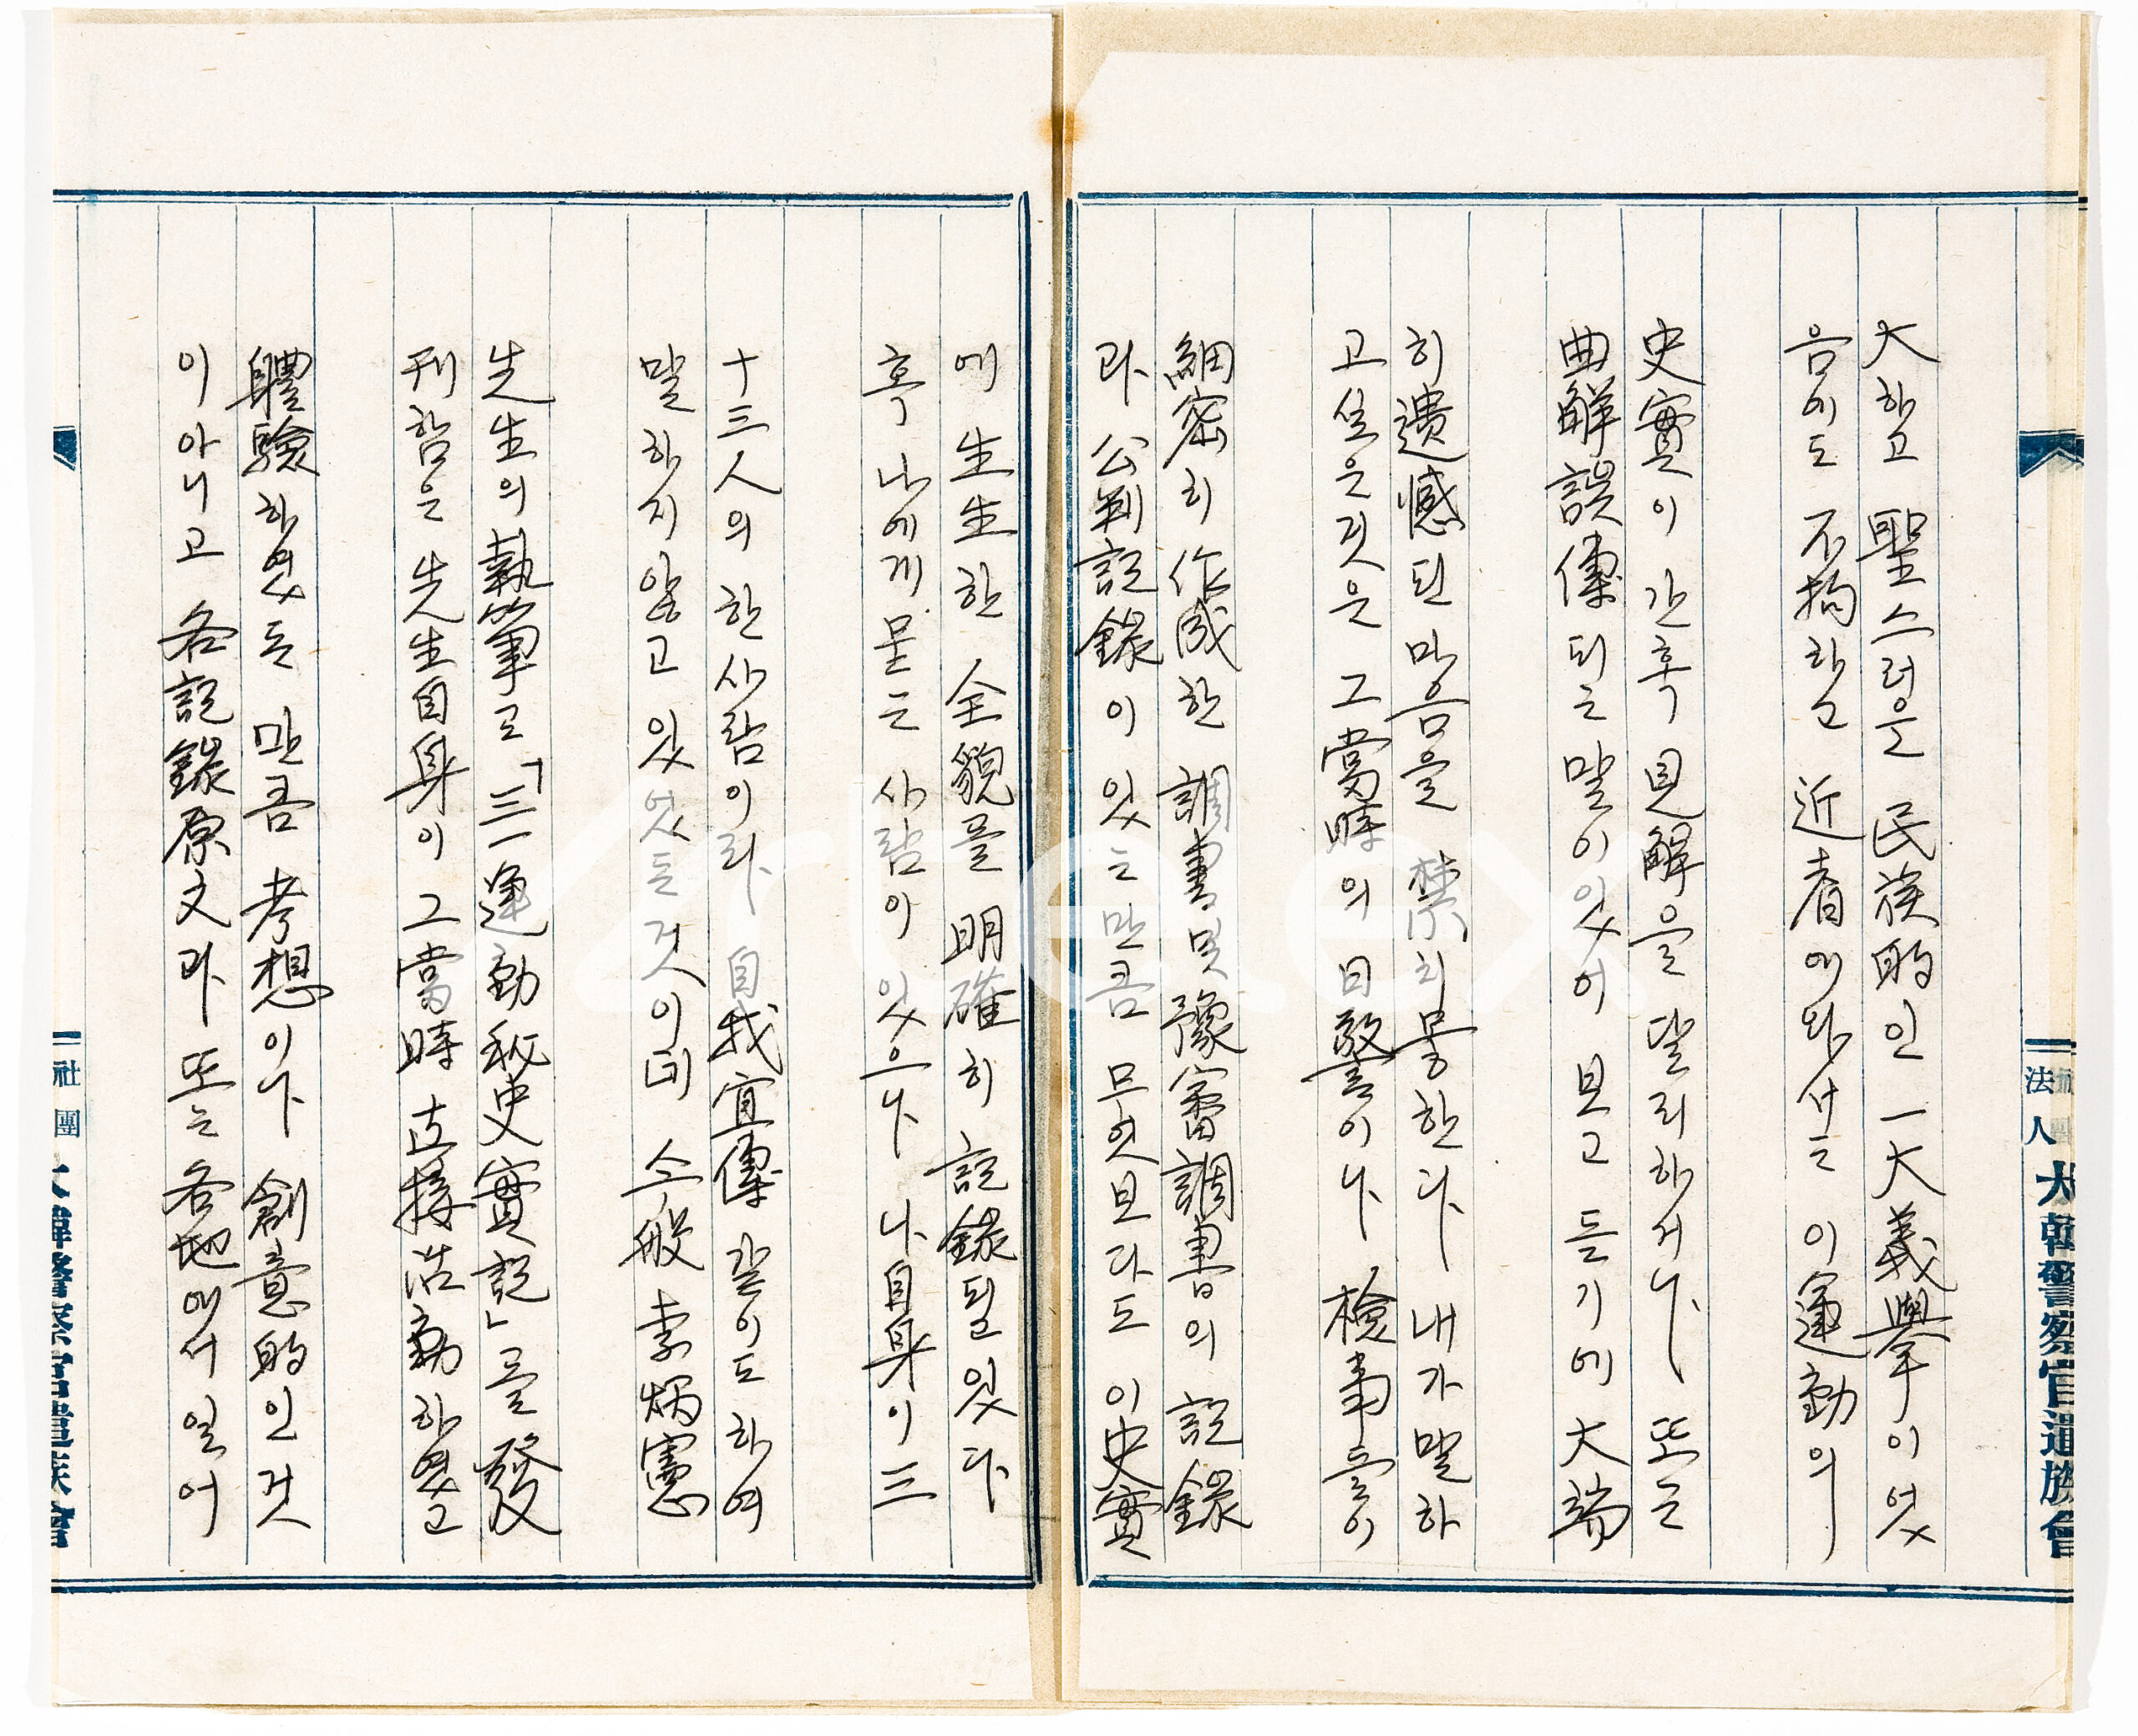 大하고 聖스러운 民族的인 一大義擧이엿
음에도 不拘하고 近者에와서는 이運動의
史實이 간혹 見解을 달리하거나 또는
曲解誤傳되는 말이있어 보고 듣기에 大端
히 遺憾된 마음을 禁치못한다 내가 말하
고싶은것은 그當時의 日警이나 檢事들이
細密히 作成한 調書및豫審調書의 記錄
과 公判記錄이 있는만큼 무엇보다도 이史實
에 生生한 全貌를 明確히 記錄되있다
혹 나에게 묻는 사람이 있으나 나自身이 三
十三人의 한사람이라 自我宣傳 같이도 하여
말하지않고 있었든것이데 今般 李炳憲
先生의 執筆로「三一運動秘史實記」를 發
刊함은 先生自身이 그當時 直接活動하였고
體驗하였든 만큼 考想이나 創意的인것
이아니고 各記錄原文과 또는 各地에서 일어
法人 大韓警察官遺族會
社團